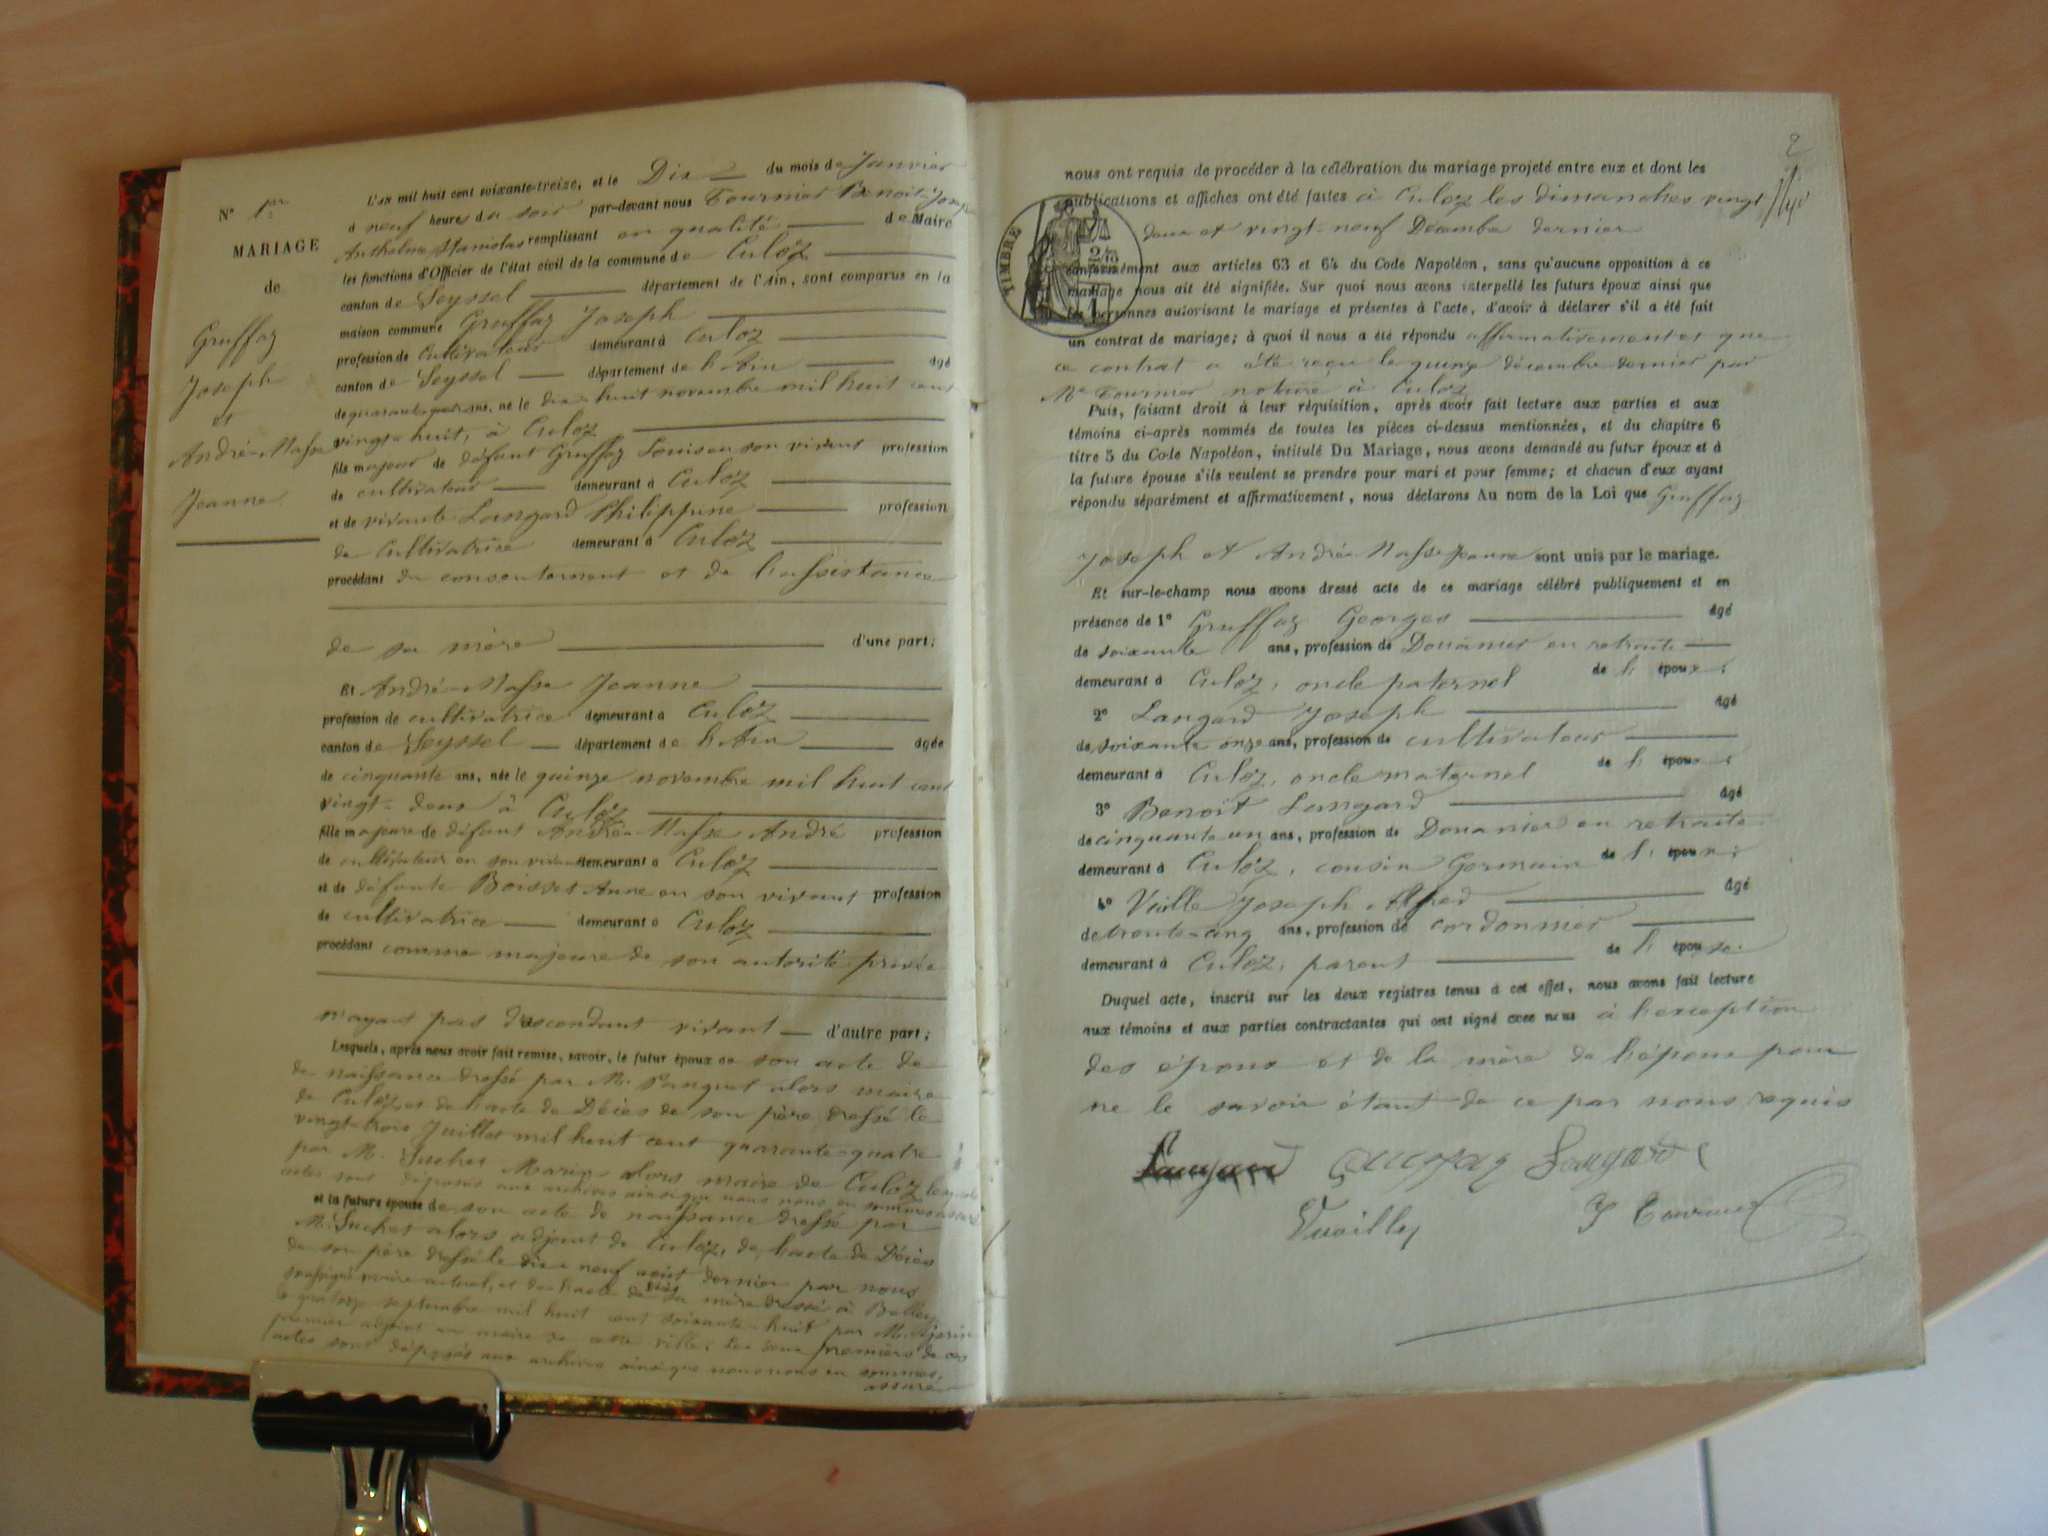 N° 1er
MARIAGE
de
Gruffaz
Joseph
et
André-Masse
Jeanne
L'an mil huit cent soixante-treize, et le Dix du mois de Janvier
à neuf heures du soir par-devant nous Tournier Benoit Joseph
Anthelme Stanislas remplissant en qualité de Maire
les fonctions d'Officier de l'état civil de la commune de Culoz
canton de Seyssel département de l'Ain, sont comparus en la
maison commune Gruffaz Joseph
profession de Cultivateur demeurant à Culoz
canton de Seyssel département de l'Ain âgé
de quarante-quatre ans, né le dix-huit novembre mil huit cent
vingt-huit, à Culoz
fils majeur de défunt Gruffaz Louis en son vivant profession
de cultivateur demeurant à Culoz
et de vivante Langard Philippine profession
de Cultivatrice demeurant à Culoz
procédant du consentement et de l'assistance
de sa mère d'une part;
Et André-Masse Jeanne
profession de cultivatrice demeurant à Culoz
canton de Seyssel département de l'Ain âgée
de cinquante ans, née le quinze novembre mil huit cent
vingt-deux à Culoz
fille majeure de défunt André-Masse André profession
de cultivateur en son vivant demeurant à Culoz
et de défunte Boisset Anne en son vivant profession
de cultivatrice demeurant à Culoz
procédant comme majeure de son autorité privée
n'ayant pas d'ascendant vivant d'autre part;
Lesquels, après nous avoir fait remise, savoir, le futur époux de son acte de
de naissance dressé par M. alors maire
de Culoz et de l'acte de Décès de son père dressé le
vingt-trois Juillet mil huit cent quarante-quatre
par M. Suchet Marin alors maire de Culoz lesquels
actes sont déposés aux archives ainsi que nous nous en sommes assuré
et la future épouse de son acte de naissance dressé par
M. Suchet alors adjoint de Culoz, de l'acte de Décès
de son père dressé le dix-neuf août dernier par nous
soussigné maire actuel, et de l'acte de Décès de sa mère dressé à Belley
le quatorze septembre mil huit cent soixante-huit par M.
premier adjoint au maire de cette ville. Les deux premiers de ces
actes sont déposés aux archives ainsi que nous nous en sommes
assuré
2
nous ont requis de procéder à la célébration du mariage projeté entre eux et dont les
publications et affiches ont été faites à Culoz les dimanches vingt
deux et vingt-neuf Décembre dernier
TIMBRE
conformément aux articles 63 et 64 du Code Napoléon, sans qu'aucune opposition à ce
mariage nous ait été signifiée. Sur quoi nous avons interpellé les futurs époux ainsi que
les personnes autorisant le mariage et présentes à l'acte, d'avoir à déclarer s'il a été fait
un contrat de mariage; à quoi il nous a été répondu affirmativement et que
ce contrat a été reçu le quinze décembre dernier par
Me Tournier notaire à Culoz
Puis, faisant droit à leur réquisition, après avoir fait lecture aux parties et aux
témoins ci-après nommés de toutes les pièces ci-dessus mentionnées, et du chapitre 6
titre 5 du Code Napoléon, intitulé Du Mariage, nous avons demandé au futur époux et à
la future épouse s'ils veulent se prendre pour mari et pour femme; et chacun d'eux ayant
répondu séparément et affirmativement, nous déclarons Au nom de la Loi que Gruffaz
Joseph et André-Masse Jeanne sont unis par le mariage.
Et sur-le-champ nous avons dressé acte de ce mariage célébré publiquement et en
présence de 1° Gruffaz Georges âgé
de soixante ans, profession de Douanier en retraite
demeurant à Culoz, oncle paternel de l'époux;
2° Langard Joseph âgé
de soixante onze ans, profession de cultivateur
demeurant à Culoz, oncle maternel de l'époux;
3° Benoît Langard âgé
de cinquante un ans, profession de Douanier en retraite
demeurant à Culoz, cousin Germain de l'époux;
4° Joseph Alfred âgé
de trente-cinq ans, profession de cordonnier
demeurant à Culoz, parent de l'épouse.
Duquel acte, inscrit sur les deux registres tenus à cet effet, nous avons fait lecture
aux témoins et aux parties contractantes qui ont signé avec nous à l'exception
des époux et de la mère de l'époux pour
ne le savoir étant de ce par nous requis
Langard Gruffaz Langard
Vuaillez J Tournier